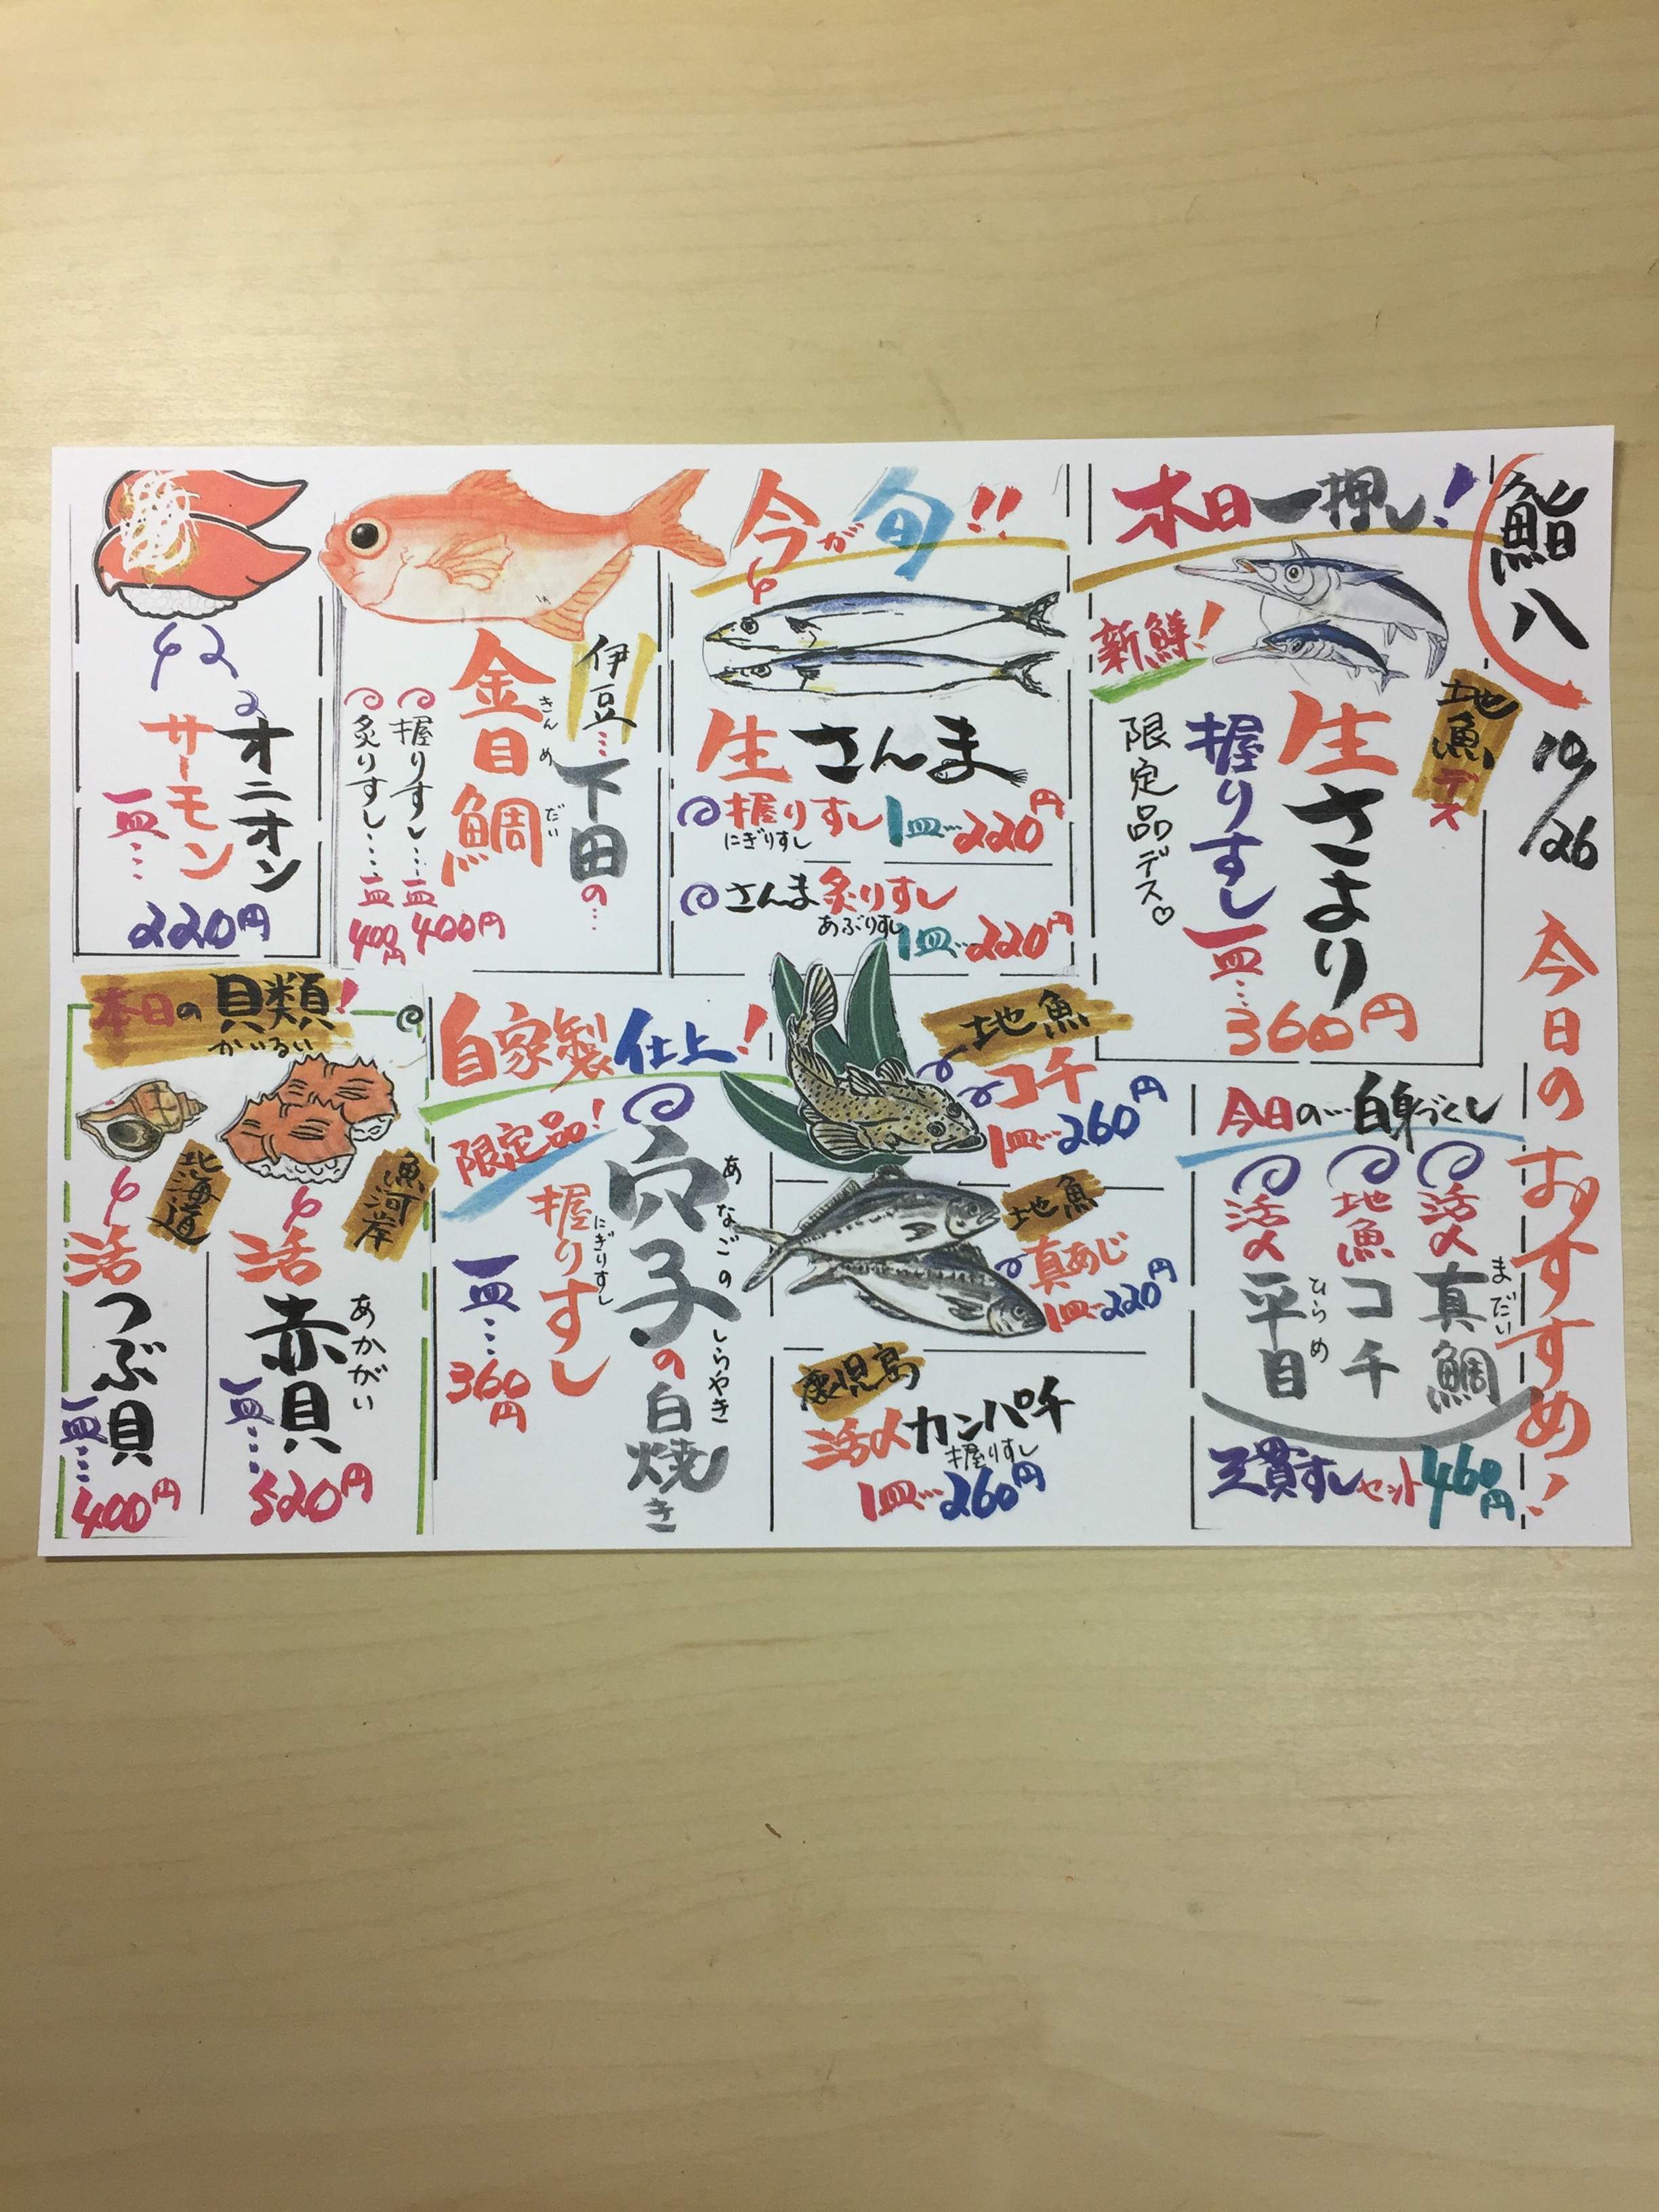 鮨八
10/26
今日のおすすめ!
本日一押し!
新鮮!
地魚デス
生さより
握りすし
一皿…360円
限定品デス♡
今が旬!!
生さんま
握りすし 1皿…220円
にぎりすし
さんま炙りすし
あぶりすし
1皿…220円
伊豆…下田の…
金目鯛
きんめだい
握りすし…一皿400円
炙りすし…一皿400円
オニオン
サーモン
一皿…
220円
今日の…白身づくし
活〆真鯛
まだい
地魚コチ
活〆平目
ひらめ
三貫すしセット460円
地魚
コチ
1皿…260円
地魚
真あじ
1皿…220円
鹿児島
活〆カンパチ
握りすし
1皿…260円
自家製仕上!
限定品!
穴子の白焼き
あなごのしらやき
握りすし
にぎりすし
一皿…
360円
本日の貝類!
かいるい
魚河岸
活赤貝
あかがい
一皿…
520円
北海道
活つぶ貝
一皿…
400円